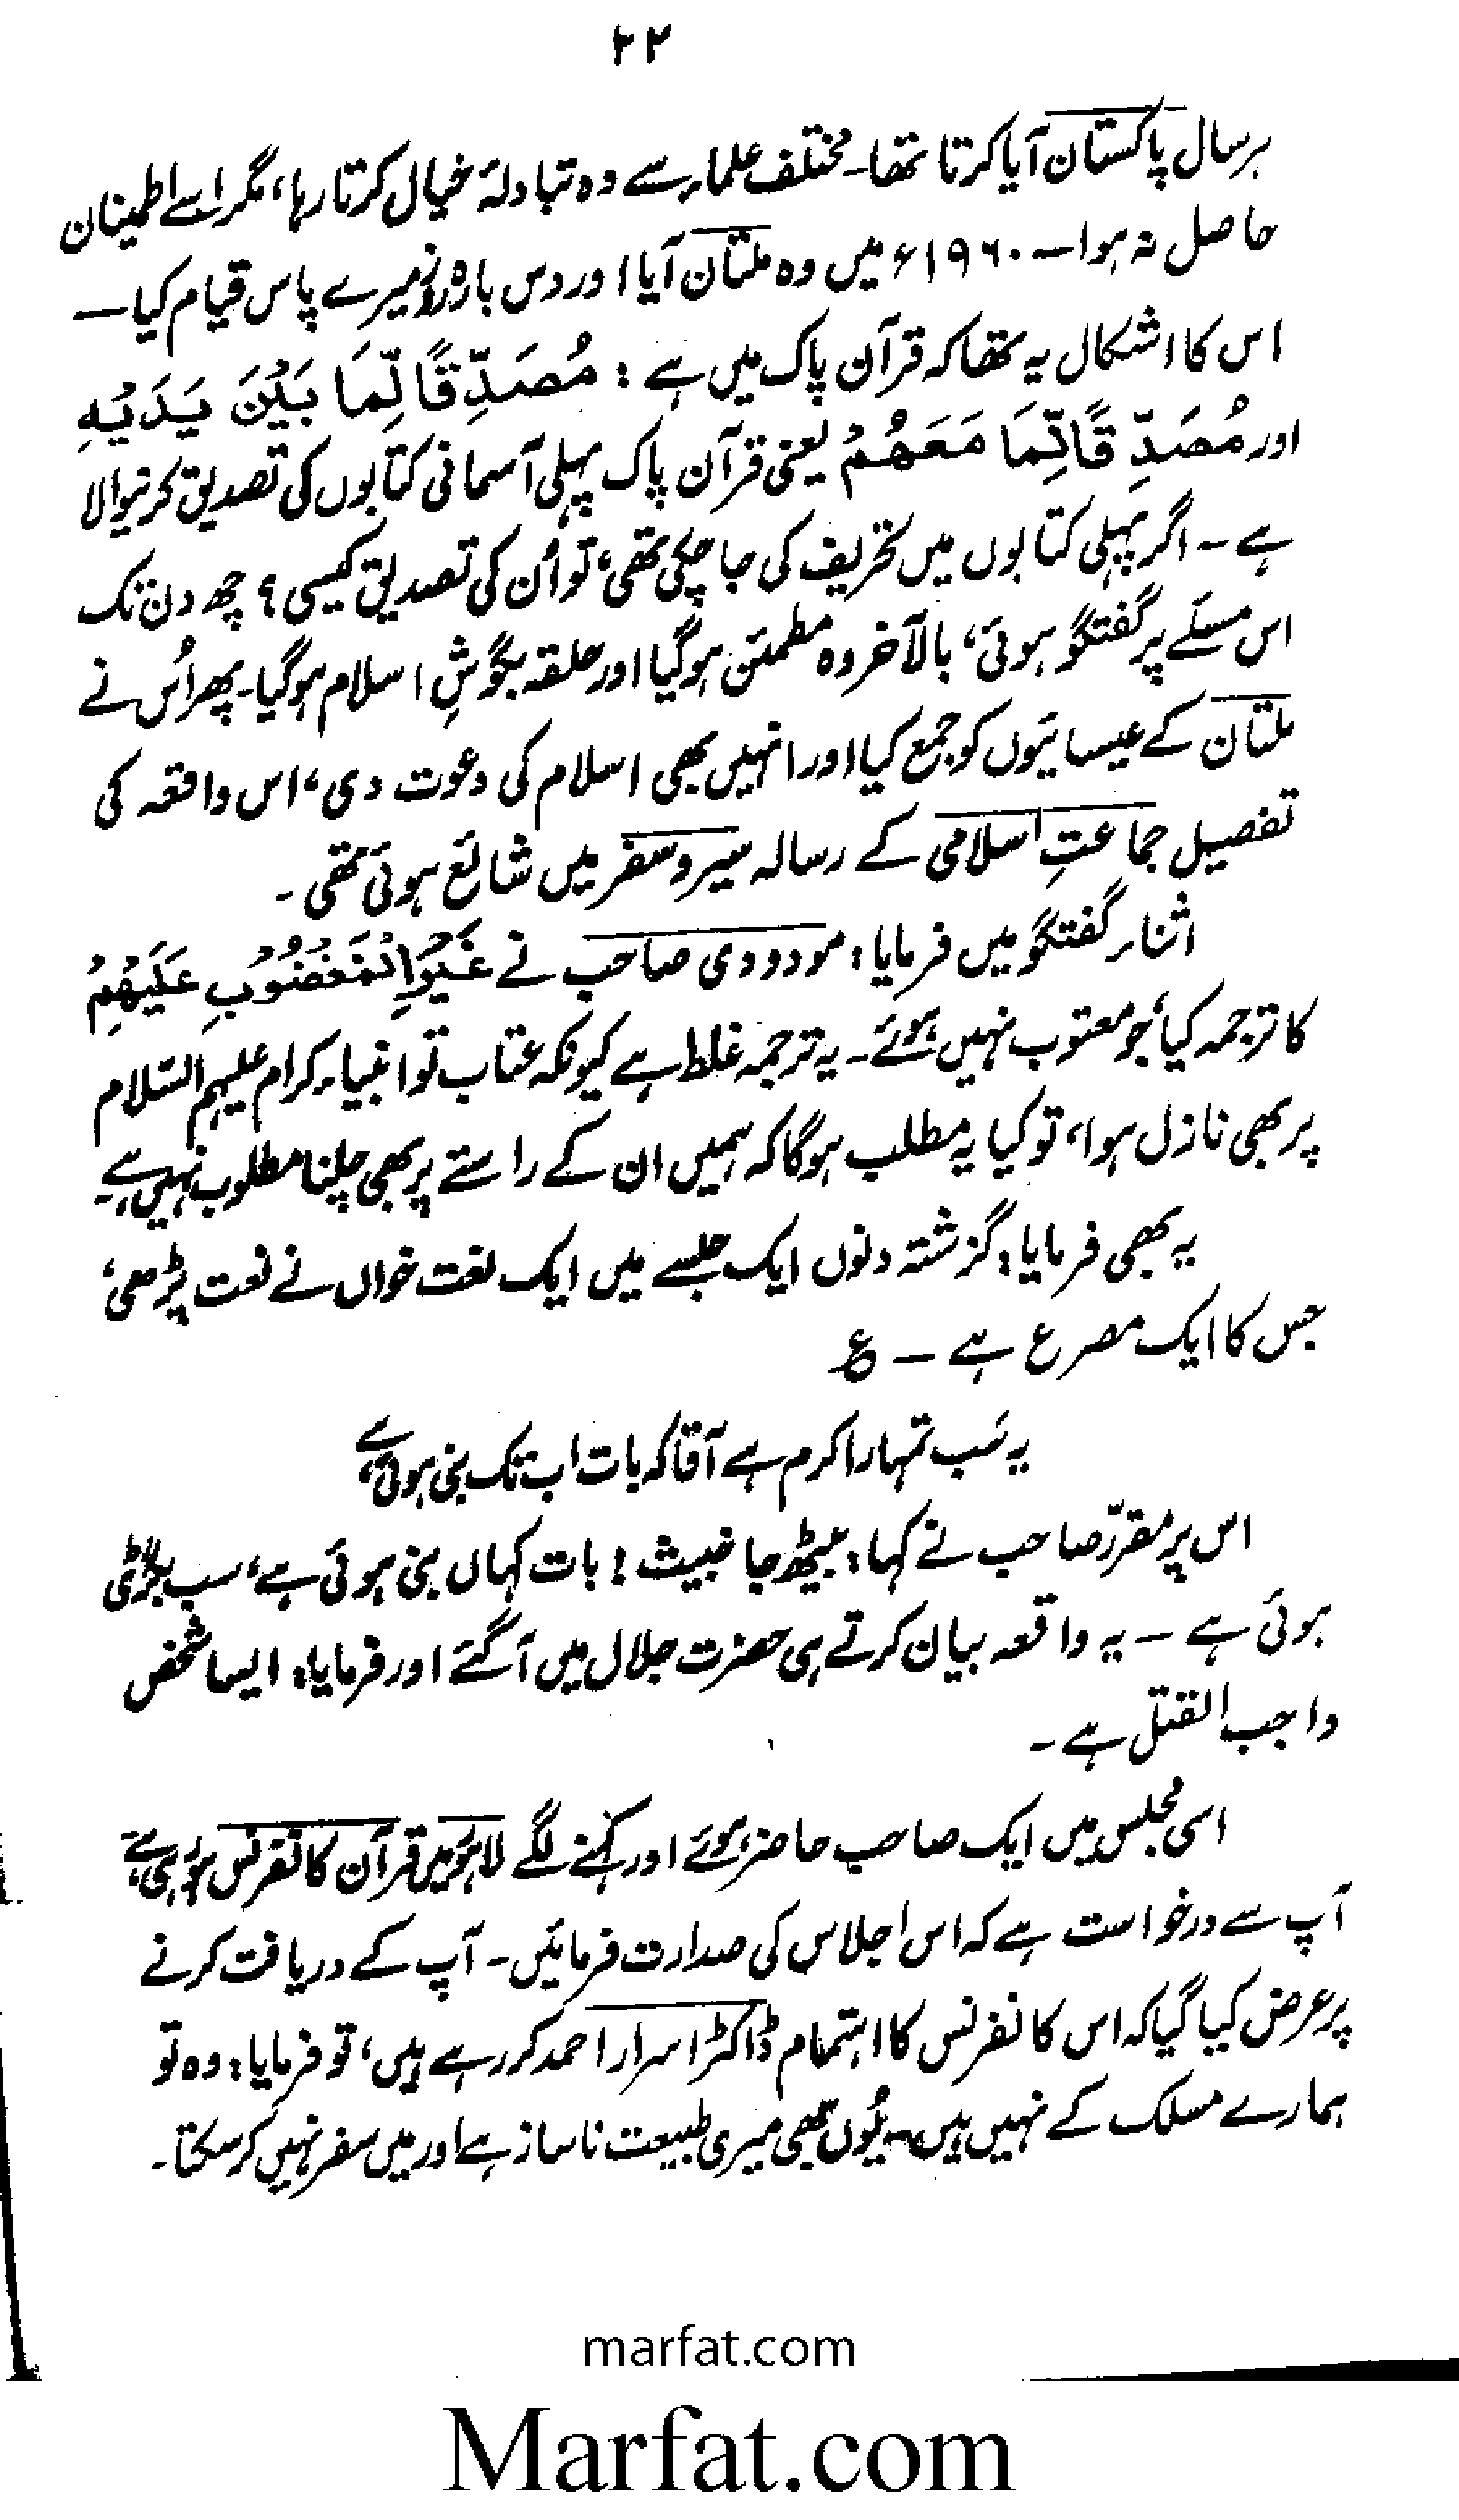 ۲۲
ہر سال پاکستان آیا کرتا تھا۔ مختلف علماء سے وہ تبادلۂ خیال کرتا رہا، مگر اسے اطمینان
حاصل نہ ہوا ـــ ۱۹۶۰ء میں وہ ملتان آیا اور دس بارہ روز میرے پاس قیام کیا ـــ
اس کا اشکال یہ تھا کہ قرآن پاک میں ہے : مُصَدِّقًا لِّمَا بَيْنَ يَدَيْهِ
اور مُصَدِّقًا لِّمَا مَعَهُمْ یعنی قرآن پاک پہلی آسمانی کتابوں کی تصدیق کرنیوالا
ہے ۔ اگر پہلی کتابوں میں تحریف کی جا چکی تھی، تو اُن کی تصدیق کیسی ؟ چھ دن تک
اس مسئلے پر گفتگو ہوئی، بالآخر وہ مطمئن ہوگیا اور حلقہ بگوشِ اسلام ہوگیا۔ پھر اُس نے
ملتان کے عیسائیوں کو جمع کیا اور انہیں بھی اسلام کی دعوت دی، اس واقعہ کی
تفصیل جماعتِ اسلامی کے رسالہ سیر و سفر میں شائع ہوئی تھی ۔
اثناء گفتگو میں فرمایا : مودودی صاحب نے غَيْرِ الْمَغْضُوْبِ عَلَيْهِمْ
کا ترجمہ کیا، جو معتوب نہیں ہوئے ۔ یہ ترجمہ غلط ہے کیونکہ عتاب تو انبیاء کرام علیہم السّلام
پر بھی نازل ہوا، تو کیا یہ مطلب ہوگا کہ ہمیں ان کے راستے پر بھی چلنا مطلوب نہیں ہے۔
یہ بھی فرمایا : گزشتہ دنوں ایک جلسے میں ایک نعت خواں نے نعت پڑھی،
جس کا ایک مصرع ہے ـــ ع
یہ سَب تمہارا کرم ہے آقا کہ بات اب تک بنی ہوئی ہے
اس پر مقرّر صاحب نے کہا : بیٹھ جا خبیث ! بات کہاں بنی ہوئی ہے، سب بگڑی
ہوئی ہے ـــ یہ واقعہ بیان کرتے ہی حضرت جلال میں آگئے اور فرمایا : ایسا شخص
واجب القتل ہے ۔
اسی مجلس میں ایک صاحب حاضر ہوئے اور کہنے لگے لاہور میں قرآن کانفرنس ہو رہی ہے
آپ سے درخواست ہے کہ اس اجلاس کی صدارت فرمائیں ۔ آپ کے دریافت کرنے
پر عرض کیا گیا کہ اس کانفرنس کا اہتمام ڈاکٹر اسرار احمد کر رہے ہیں، تو فرمایا : وہ تو
ہمارے مسلک کے نہیں ہیں، یُوں بھی میری طبیعت ناساز ہے اور میں سفر نہیں کر سکتا۔
marfat.com
Marfat.com